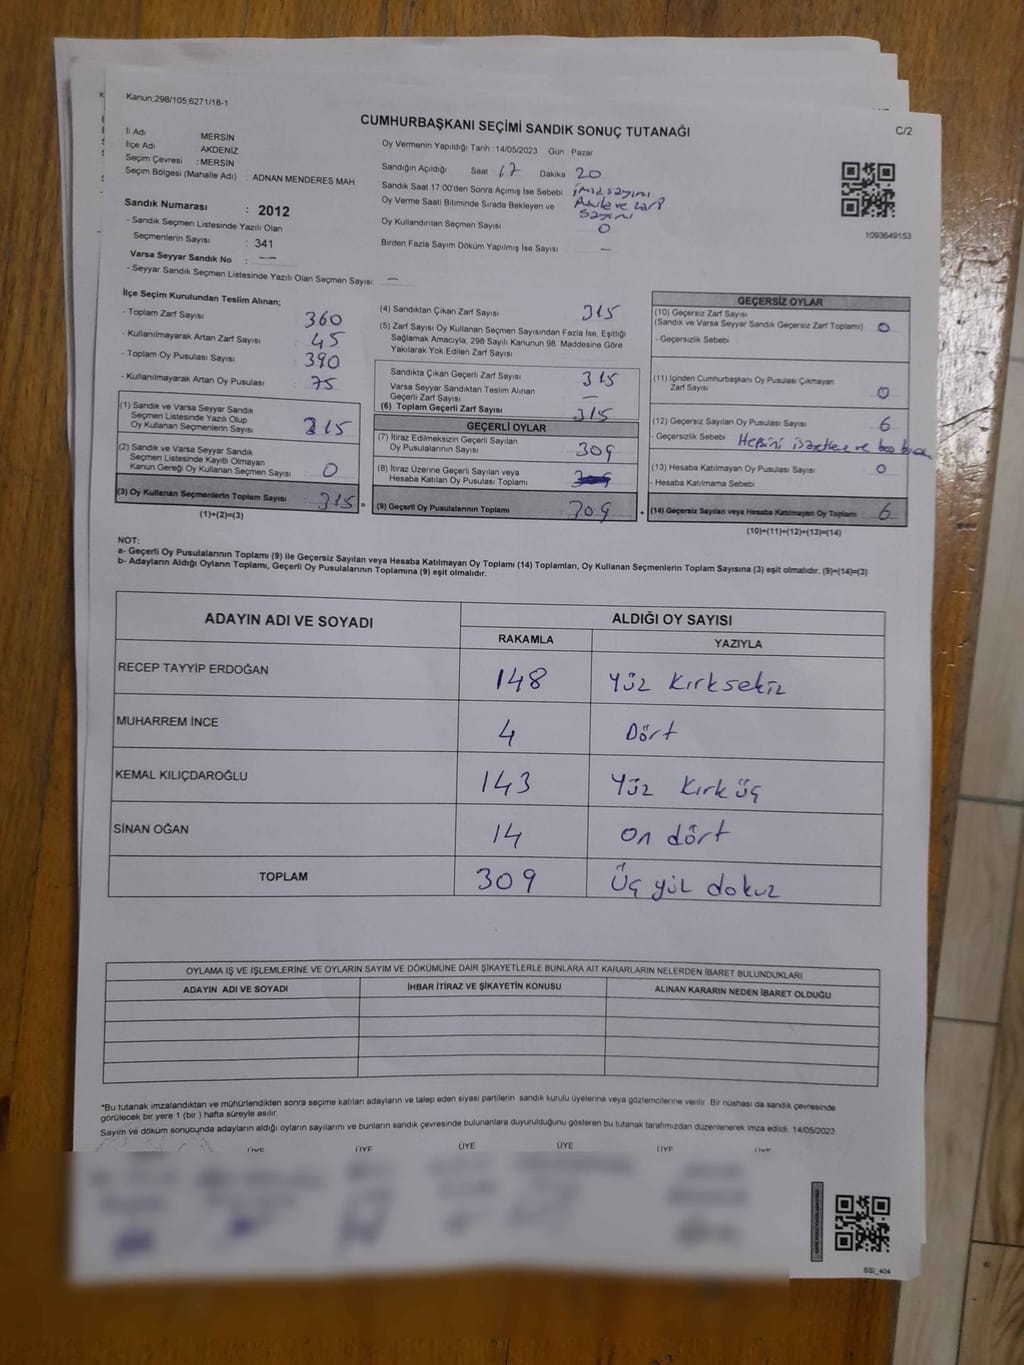 Kanun;298/105,6271/18-1
CUMHURBAŞKANI SEÇİMİ SANDIK SONUÇ TUTANAĞI
C/2
İl Adı MERSİN
İlçe Adı AKDENİZ
Seçim Çevresi : MERSİN
Seçim Bölgesi (Mahalle Adı) : ADNAN MENDERES MAH.
Sandık Numarası : 2012
- Sandık Seçmen Listesinde Yazılı Olan
Seçmenlerin Sayısı : 341
Varsa Seyyar Sandık No : —
- Seyyar Sandık Seçmen Listesinde Yazılı Olan Seçmen Sayısı : —
Oy Vermenin Yapıldığı Tarih : 14/05/2023 Gün : Pazar
Sandığın Açıldığı Saat 17 Dakika 20
Sandık Saat 17.00'den Sonra Açılmış İse Sebebi imza sayımı
Oy Verme Saati Bitiminde Sırada Bekleyen ve Pusula ve zarf
sayımı
Oy Kullandırılan Seçmen Sayısı 0
Birden Fazla Sayım Döküm Yapılmış İse Sayısı —
1093649153
İlçe Seçim Kurulundan Teslim Alınan;
- Toplam Zarf Sayısı : 360
- Kullanılmayarak Artan Zarf Sayısı : 45
- Toplam Oy Pusulası Sayısı : 390
- Kullanılmayarak Artan Oy Pusulası : 75
(1) Sandık ve Varsa Seyyar Sandık
Seçmen Listesinde Yazılı Olup
Oy Kullanan Seçmenlerin Sayısı : 315
(2) Sandık ve Varsa Seyyar Sandık
Seçmen Listesinde Kayıtlı Olmayan
Kanun Gereği Oy Kullanan Seçmen Sayısı : 0
(3) Oy Kullanan Seçmenlerin Toplam Sayısı : 315 =
(1)+(2)=(3)
(4) Sandıktan Çıkan Zarf Sayısı : 315
(5) Zarf Sayısı Oy Kullanan Seçmen Sayısından Fazla İse, Eşitliği
Sağlamak Amacıyla, 298 Sayılı Kanunun 98. Maddesine Göre
Yakılarak Yok Edilen Zarf Sayısı
Sandıkta Çıkan Geçerli Zarf Sayısı : 315
Varsa Seyyar Sandıktan Teslim Alınan
Geçerli Zarf Sayısı : —
(6) Toplam Geçerli Zarf Sayısı : 315
GEÇERLİ OYLAR
(7) İtiraz Edilmeksizin Geçerli Sayılan
Oy Pusulalarının Sayısı : 309
(8) İtiraz Üzerine Geçerli Sayılan veya
Hesaba Katılan Oy Pusulası Toplamı :
(9) Geçerli Oy Pusulalarının Toplamı : 309 +
GEÇERSİZ OYLAR
(10) Geçersiz Zarf Sayısı
(Sandık ve Varsa Seyyar Sandık Geçersiz Zarf Toplamı) : 0
- Geçersizlik Sebebi
(11) İçinden Cumhurbaşkanı Oy Pusulası Çıkmayan
Zarf Sayısı : 0
(12) Geçersiz Sayılan Oy Pusulası Sayısı : 6
- Geçersizlik Sebebi : Hepsini ve boş
(13) Hesaba Katılmayan Oy Pusulası Sayısı : 0
- Hesaba Katılmama Sebebi
(14) Geçersiz Sayılan veya Hesaba Katılmayan Oy Toplamı : 6
(10)+(11)+(12)+(13)=(14)
NOT:
a- Geçerli Oy Pusulalarının Toplamı (9) ile Geçersiz Sayılan veya Hesaba Katılmayan Oy Toplamı (14) Toplamları, Oy Kullanan Seçmenlerin Toplam Sayısına (3) eşit olmalıdır. (9)+(14)=(3)
b- Adayların Aldığı Oyların Toplamı, Geçerli Oy Pusulalarının Toplamına (9) eşit olmalıdır.
ADAYIN ADI VE SOYADI ALDIĞI OY SAYISI
RAKAMLA YAZIYLA
RECEP TAYYİP ERDOĞAN 148 Yüz Kırksekiz
MUHARREM İNCE 4 Dört
KEMAL KILIÇDAROĞLU 143 Yüz Kırk üç
SİNAN OĞAN 14 On dört
TOPLAM 309 Üç yüz dokuz
OYLAMA İŞ VE İŞLEMLERİNE VE OYLARIN SAYIM VE DÖKÜMÜNE DAİR ŞİKAYETLERLE BUNLARA AİT KARARLARIN NELERDEN İBARET BULUNDUKLARI
ADAYIN ADI VE SOYADI İHBAR İTİRAZ VE ŞİKAYETİN KONUSU ALINAN KARARIN NEDEN İBARET OLDUĞU
*Bu tutanak imzalandıktan ve mühürlendikten sonra seçime katılan adayların ve talep eden siyasi partilerin sandık kurulu üyelerine veya gözlemcilerine verilir. Bir nüshası da sandık çevresinde
görülecek bir yere 1 (bir ) hafta süreyle asılır.
Sayım ve döküm sonucunda adayların aldığı oyların sayılarını ve bunların sandık çevresinde bulunanlara duyurulduğunu gösteren bu tutanak tarafımızdan düzenlenerek imza edildi. 14/05/2023
ÜYE ÜYE ÜYE ÜYE ÜYE ÜYE
SSİ_404